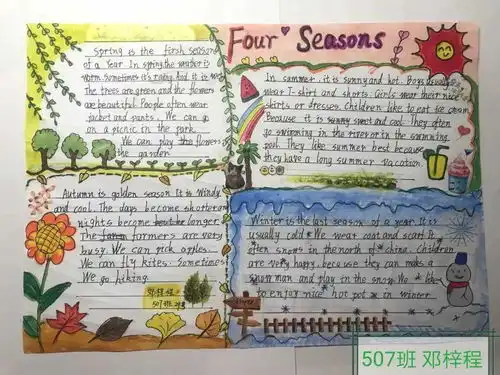 Four Seasons
Spring is the firsh season
of a Year In spring, the weather is
worm. Sometimes it's rainy. And it is wet
The trees are green and the flowers
are beautiful. People often wear
jacket and pants. We can go
on a picnic in the park.
We can play the flowers
the garden
In summer, it is sunny and hot. Boys usually
wear T-shirt and shorts. Girls wear their nice
skirts or dresses. Children like to eat ice cream
Because it is sunny sweet and cool. They often
go swimming in the river or in the swimming
pool. They like summer best because
they have a long summer vacation
Autumn is golden season. It is windy
and cool. The days become shorter and
nights become longer.
The farmers are very
busy. We can pick apples.
We can fly kites. Sometimes
We go hiking.
邓梓程
507班
Winter is the last season of a year. It is
usually cold. We wear coat and scarf. It
often snows in the north of china. Children
are very happy, because they can make a
snowman and play in the snow. We like
to enjoy nice hot pot in winter
507班 邓梓程